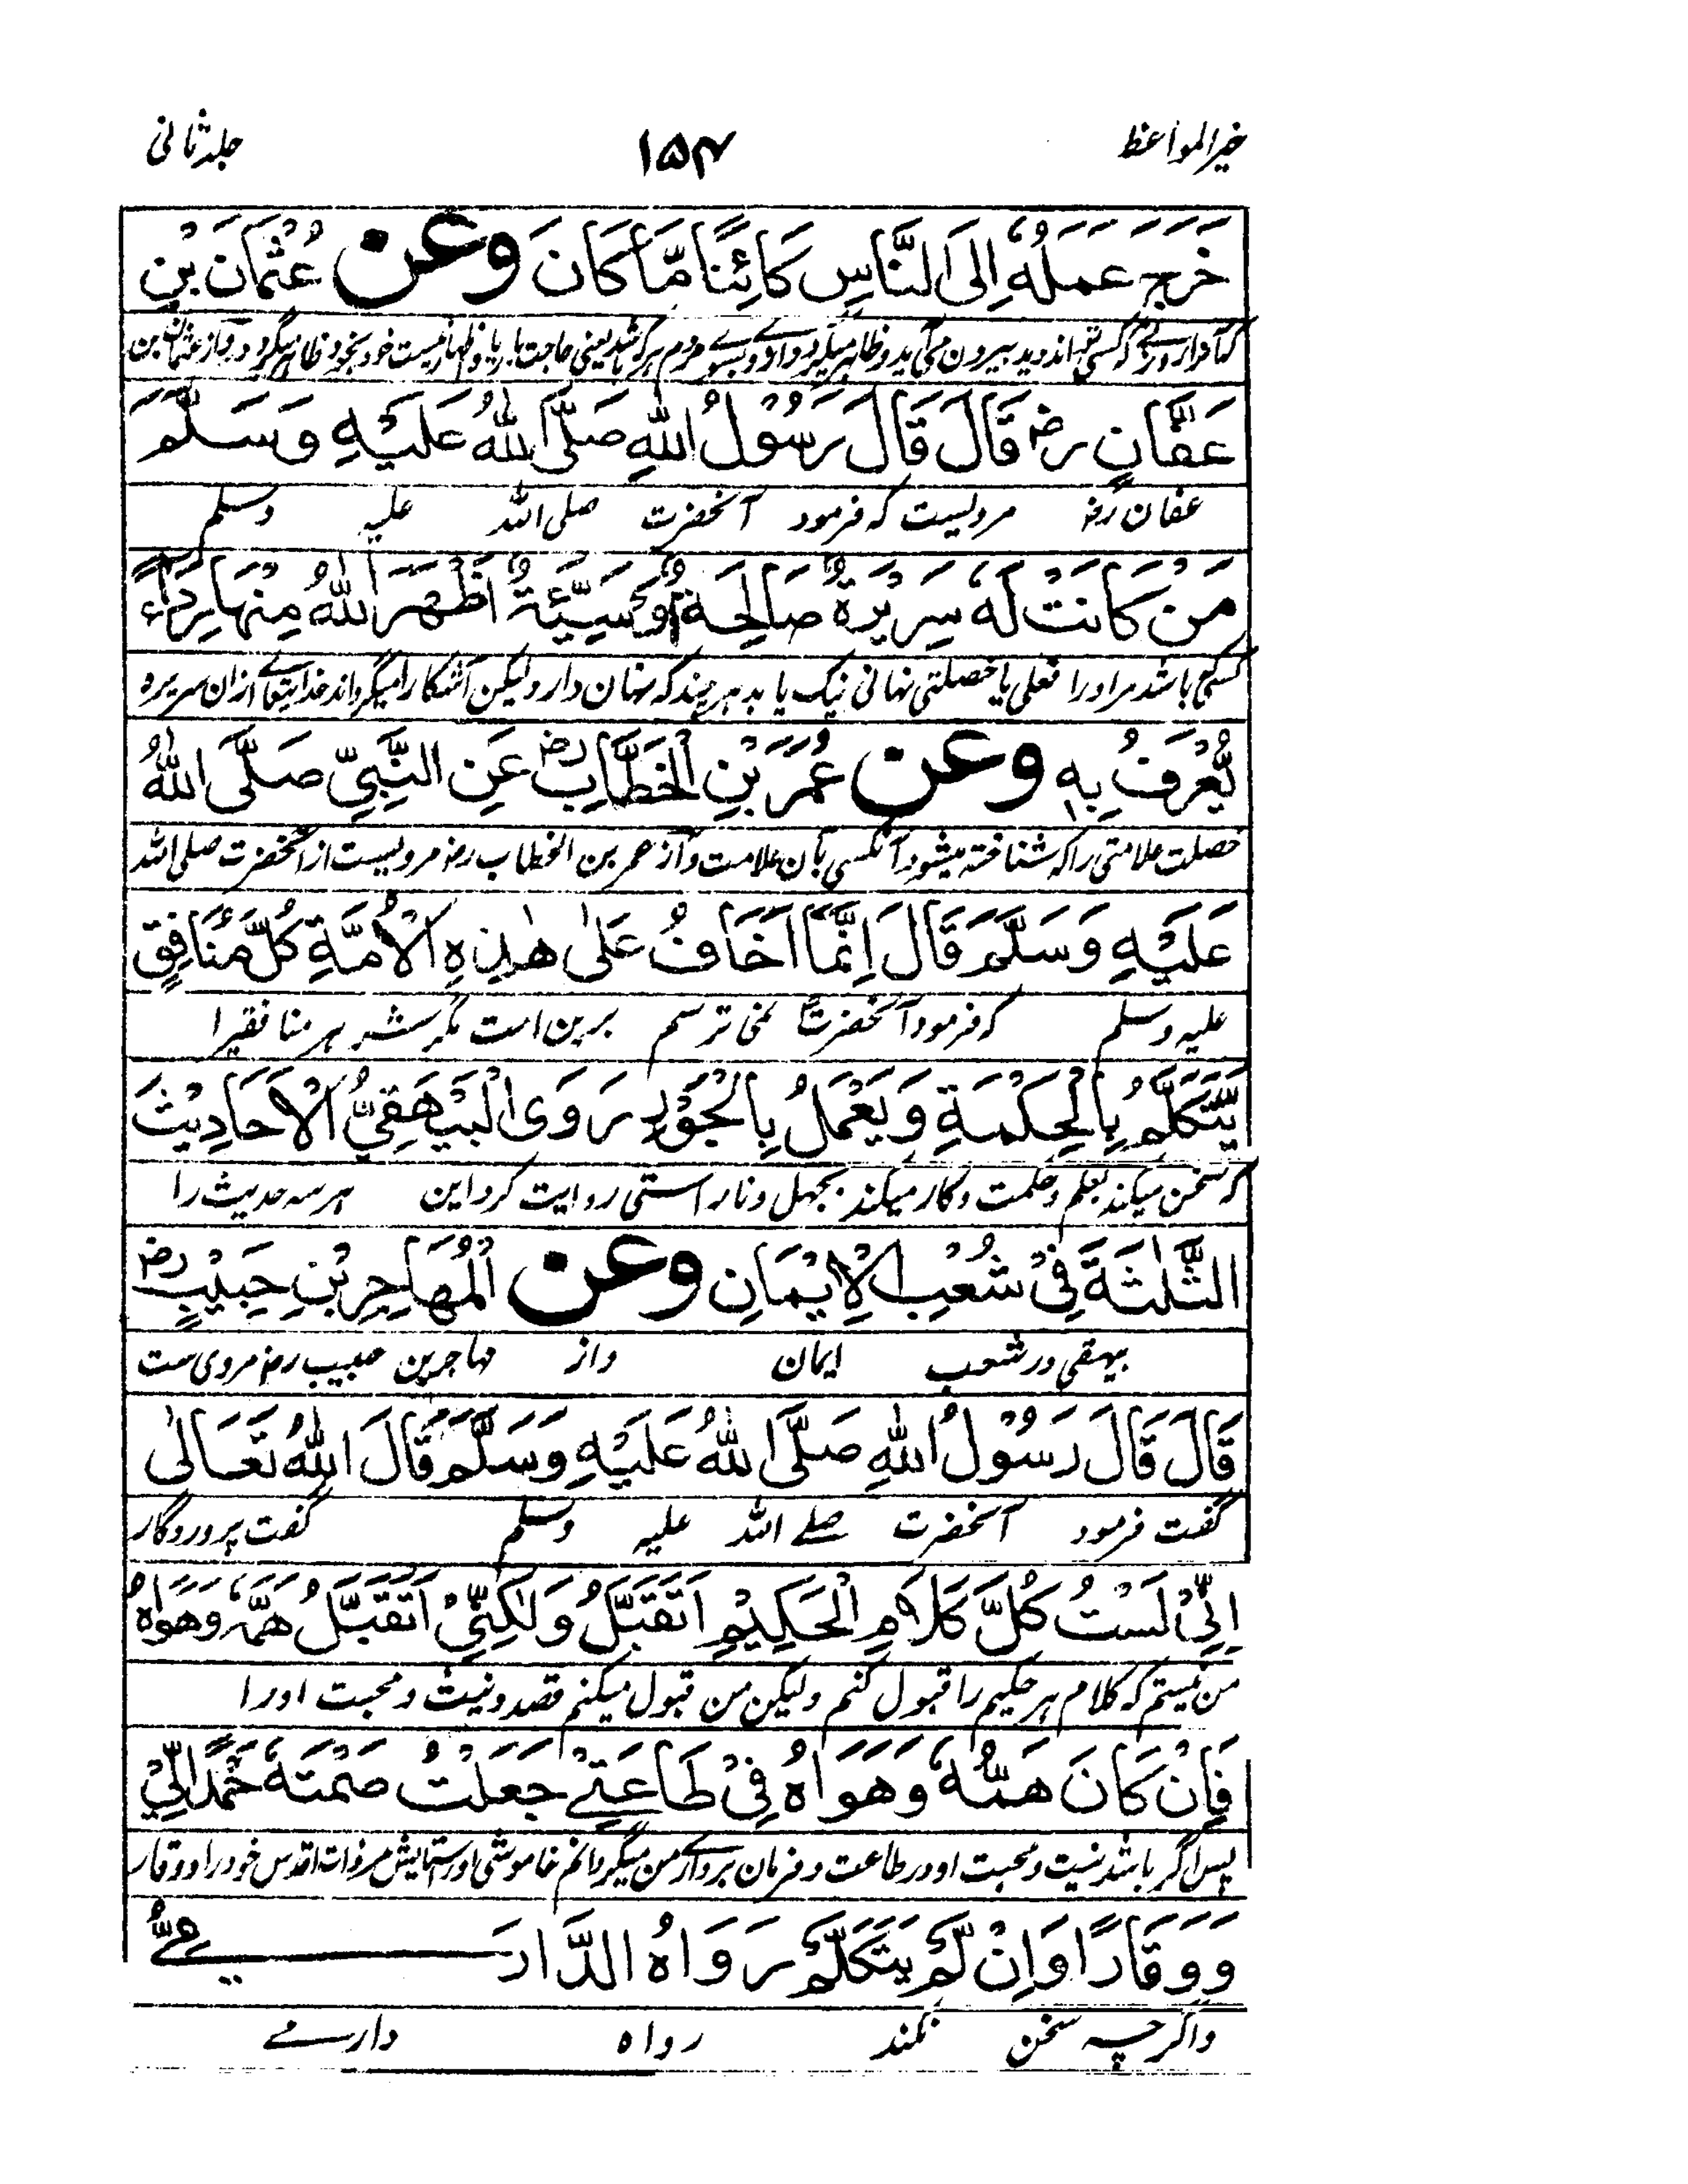 خیرالمواعظ ۱۵۴ جلد ثانی
خَرَجَ عَمَلُهٗ اِلَى النَّاسِ كَائِنًا مَّا كَانَ وعن عُثْمَانَ بْنِ
کسی نتواند دید بیرون می آید و ظاهر میگردد و بسوے مردم هرکه باشد یعنی حاجت بریا و اظهار نیست خود بخود ظاهر میگردد و از عثمان بن
عَفَّانٍ رض قَالَ قَالَ رَسُوْلُ اللهِ صَلَّى اللهُ عَلَيْهِ وَسَلَّمَ
عفان رض مرویست که فرمود آنحضرت صلی الله علیه وسلم
مَنْ كَانَتْ لَهٗ سَرِيْرَةٌ صَالِحَةٌ اَوْ سَيِّئَةٌ اَظْهَرَ اللهُ مِنْهَا رِدَاءً
کسیکه باشد مر او را فعلی یا خصلتی نهانی نیک یا بد هر چند که نهان دارد لیکن آشکارا میگرداند خدایتعالے ازان سریره
يُّعْرَفُ بِهٖ وعن عُمَرَ بْنِ الْخَطَّابِ رض عَنِ النَّبِيِّ صَلَّى اللهُ
خصلت علامتی را که شناخته میشود آنکس بآن علامت و از عمر بن الخطاب رض مرویست از آنحضرت صلی الله
عَلَيْهِ وَسَلَّمَ قَالَ اِنَّمَا اَخَافُ عَلٰى هٰذِهِ الْاُمَّةِ كُلَّ مُنَافِقٍ
علیه وسلم که فرمود آنحضرت نمی ترسم برین امت مگر شر هر منافقیرا
يَّتَكَلَّمُ بِالْحِكْمَةِ وَيَعْمَلُ بِالْجَوْرِ رَوَى الْبَيْهَقِيُّ الْاَحَادِيْثَ
که سخن میکند بعلم و حکمت و کار میکند بجهل و ناراستی روایت کرد این هر سه حدیث را
الثَّلٰثَةَ فِيْ شُعَبِ الْاِيْمَانِ وعن الْمُهَاجِرِ بْنِ حَبِيْبٍ رض
بیهقی در شعب ایمان واز مهاجر بن حبیب رض مروی ست
قَالَ قَالَ رَسُوْلُ اللهِ صَلَّى اللهُ عَلَيْهِ وَسَلَّمَ قَالَ اللهُ تَعَالٰى
گفت فرمود آنحضرت صلے الله علیه وسلم گفت پروردگار
اِنِّيْ لَسْتُ كُلَّ كَلَامِ الْحَكِيْمِ اَتَقَبَّلُ وَلٰكِنِّيْ اَتَقَبَّلُ هَمَّهٗ وَهَوَاهُ
من نیستم که کلام هر حکیم را قبول کنم ولیکن من قبول میکنم قصد و نیت و محبت او را
فَاِنْ كَانَ هَمُّهٗ وَهَوَاهُ فِيْ طَاعَتِيْ جَعَلْتُ صَمْتَهٗ حَمْدًا لِّيْ
پس اگر باشد نیت و محبت او در طاعت و فرمان بردارے من میگردانم خاموشی او ستایش مر ذات اقدس خود را و وقار
وَوَقَارًا وَاِنْ لَّمْ يَتَكَلَّمْ رَوَاهُ الدَّارِمِيُّ
و اگر چه سخن نکند رواه دارمے